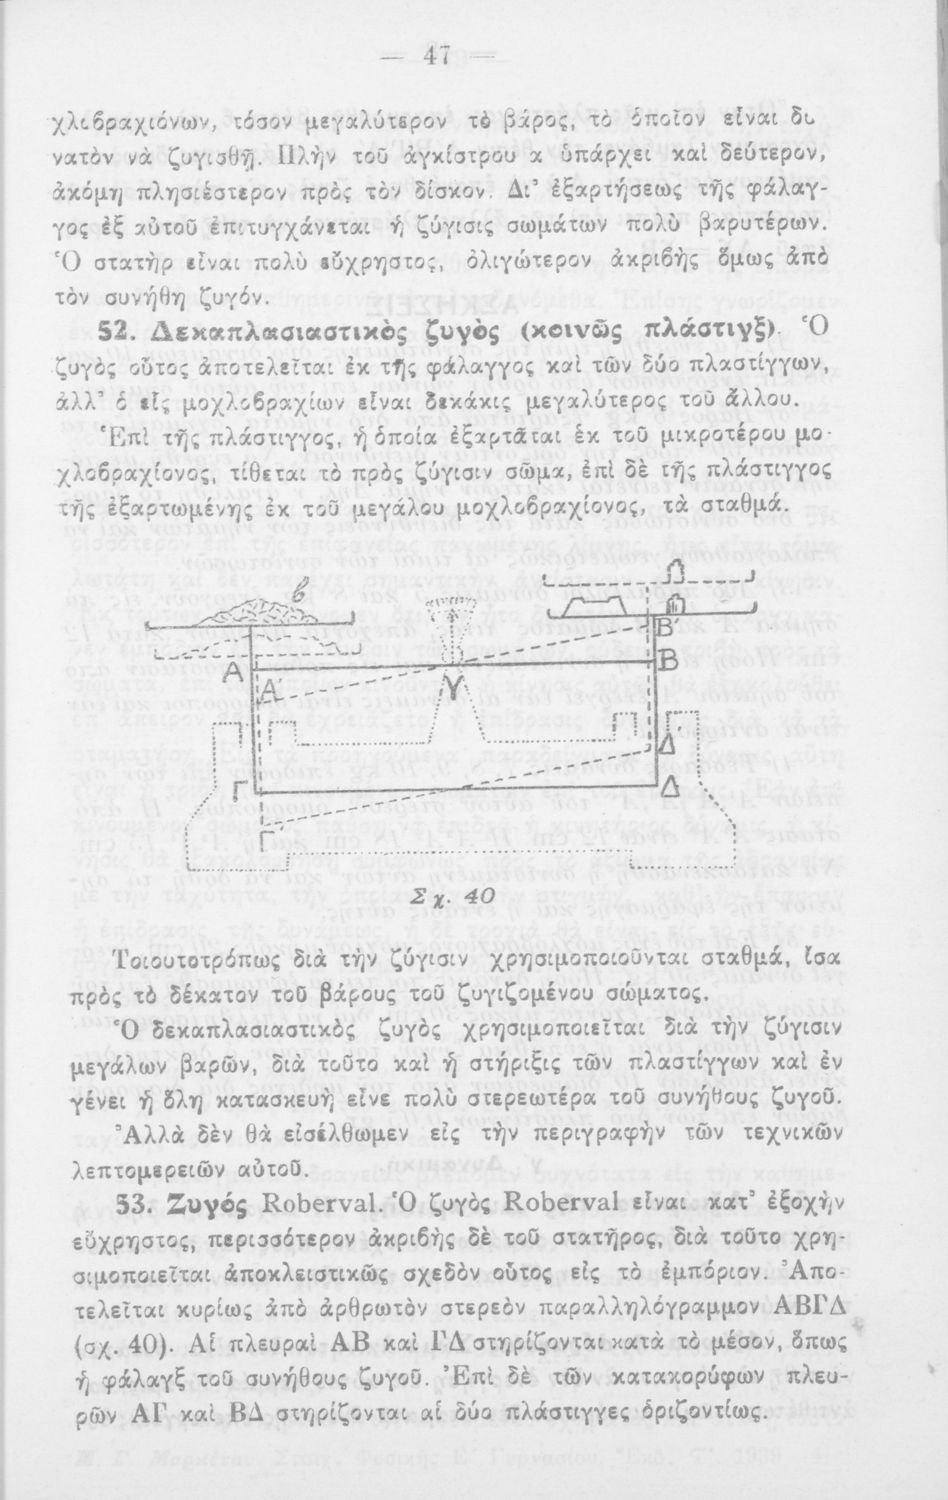 — 47 —
χλοβραχιόνων, τόσον μεγαλύτερον τὸ βάρος, τὸ ὁποῖον εἶναι δυ
νατὸν νὰ ζυγισθῇ. Πλὴν τοῦ ἀγκίστρου α ὑπάρχει καὶ δεύτερον,
ἀκόμη πλησιέστερον πρὸς τὸν δίσκον. Δι' ἐξαρτήσεως τῆς φάλαγ-
γος ἐξ αὐτοῦ ἐπιτυγχάνεται ἡ ζύγισις σωμάτων πολὺ βαρυτέρων.
Ὁ στατὴρ εἶναι πολὺ εὔχρηστος, ὀλιγώτερον ἀκριβὴς ὅμως ἀπὸ
τὸν συνήθη ζυγόν.
52. Δεκαπλασιαστικὸς ζυγὸς (κοινῶς πλάστιγξ). Ὁ
ζυγὸς οὗτος ἀποτελεῖται ἐκ τῆς φάλαγγος καὶ τῶν δύο πλαστίγγων,
ἀλλ' ὁ εἷς μοχλοβραχίων εἶναι δεκάκις μεγαλύτερος τοῦ ἄλλου.
Ἐπὶ τῆς πλάστιγγος, ἡ ὁποία ἐξαρτᾶται ἐκ τοῦ μικροτέρου μο-
χλοβραχίονος, τίθεται τὸ πρὸς ζύγισιν σῶμα, ἐπὶ δὲ τῆς πλάστιγγος
τῆς ἐξαρτωμένης ἐκ τοῦ μεγάλου μοχλοβραχίονος, τὰ σταθμά.
β
Β'
Α
Β
Α'
γ
Δ
Γ
Δ
Γ'
Σχ. 40
Τοιουτοτρόπως διὰ τὴν ζύγισιν χρησιμοποιοῦνται σταθμά, ἴσα
πρὸς τὸ δέκατον τοῦ βάρους τοῦ ζυγιζομένου σώματος.
Ὁ δεκαπλασιαστικὸς ζυγὸς χρησιμοποιεῖται διὰ τὴν ζύγισιν
μεγάλων βαρῶν, διὰ τοῦτο καὶ ἡ στήριξις τῶν πλαστίγγων καὶ ἐν
γένει ἡ ὅλη κατασκευὴ εἶνε πολὺ στερεωτέρα τοῦ συνήθους ζυγοῦ.
Ἀλλὰ δὲν θὰ εἰσέλθωμεν εἰς τὴν περιγραφὴν τῶν τεχνικῶν
λεπτομερειῶν αὐτοῦ.
53. Ζυγός Roberval. Ὁ ζυγὸς Roberval εἶναι κατ' ἐξοχὴν
εὔχρηστος, περισσότερον ἀκριβὴς δὲ τοῦ στατῆρος, διὰ τοῦτο χρη-
σιμοποιεῖται ἀποκλειστικῶς σχεδὸν οὗτος εἰς τὸ ἐμπόριον. Ἀπο-
τελεῖται κυρίως ἀπὸ ἀρθρωτὸν στερεὸν παραλληλόγραμμον ΑΒΓΔ
(σχ. 40). Αἱ πλευραὶ ΑΒ καὶ ΓΔ στηρίζονται κατὰ τὸ μέσον, ὅπως
ἡ φάλαγξ τοῦ συνήθους ζυγοῦ. Ἐπὶ δὲ τῶν κατακορύφων πλευ-
ρῶν ΑΓ καὶ ΒΔ στηρίζονται αἱ δύο πλάστιγγες ὁριζοντίως.